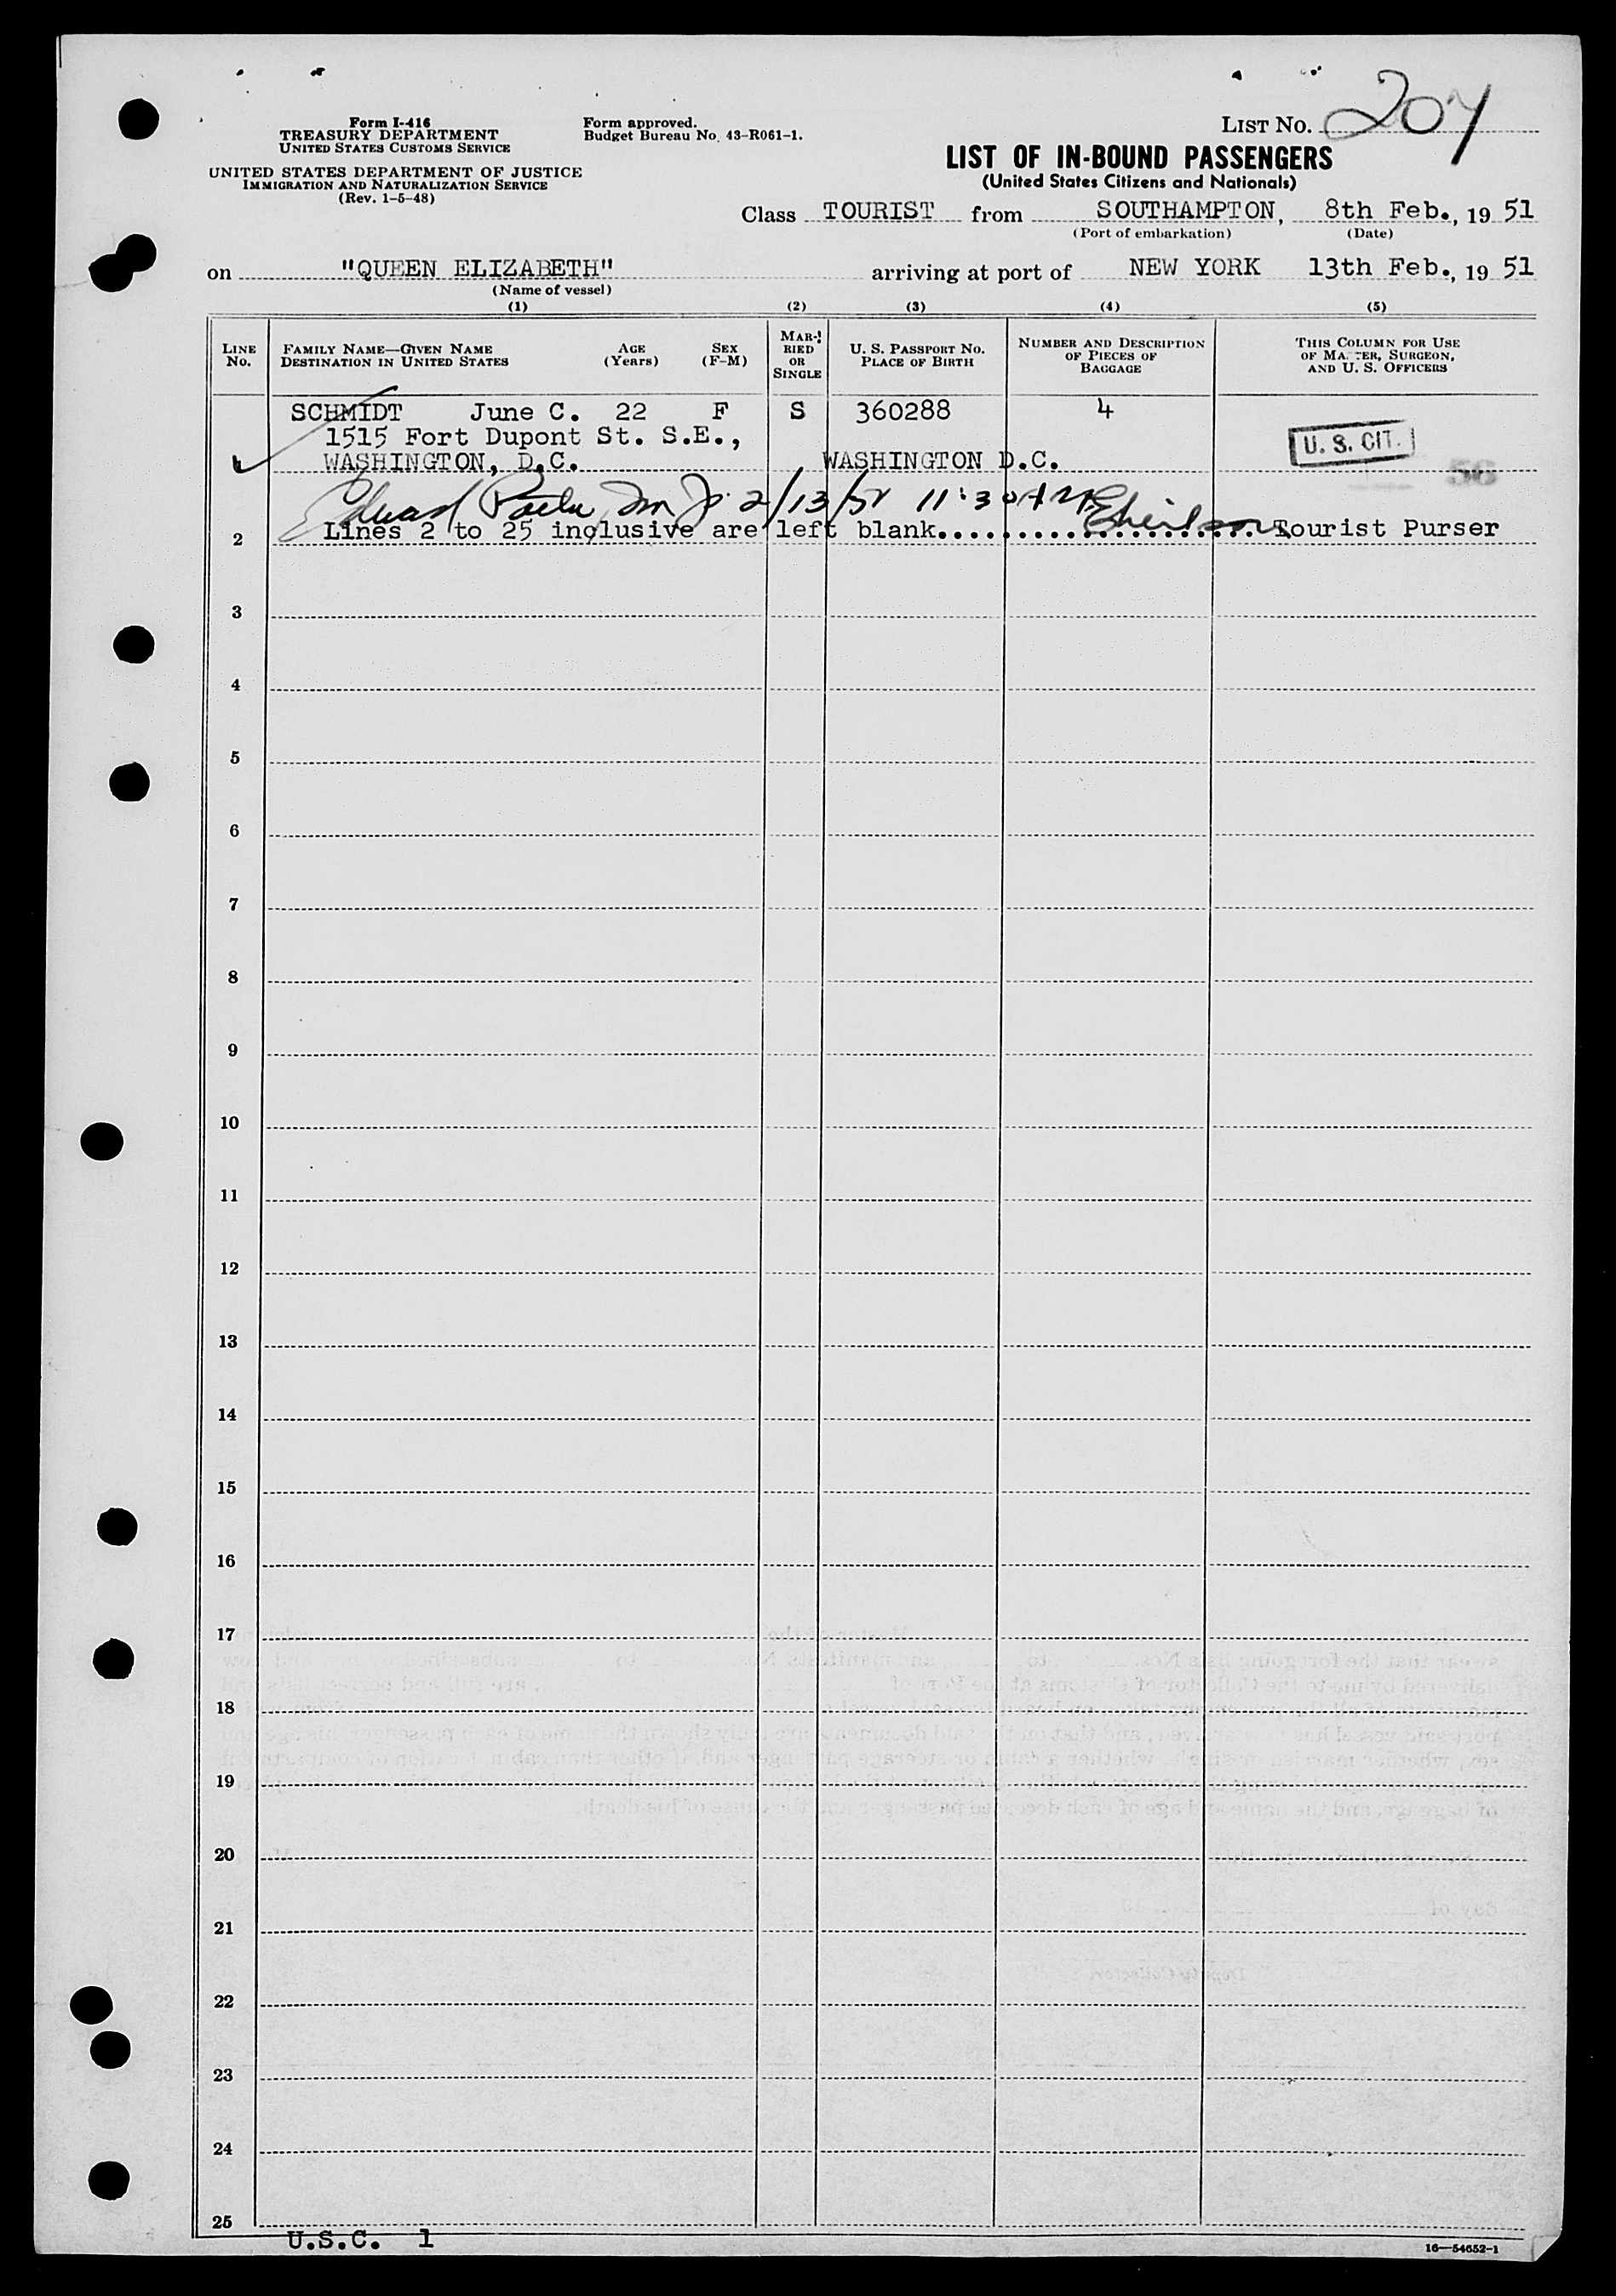 Form I-416
TREASURY DEPARTMENT
UNITED STATES CUSTOMS SERVICE
UNITED STATES DEPARTMENT OF JUSTICE
IMMIGRATION AND NATURALIZATION SERVICE
(Rev. 1-5-48)
Form approved.
Budget Bureau No. 43-R061-1.
LIST No. 207
LIST OF IN-BOUND PASSENGERS
(United States Citizens and Nationals)
Class TOURIST from SOUTHAMPTON, 8th Feb., 19 51
(Port of embarkation) (Date)
on "QUEEN ELIZABETH" arriving at port of NEW YORK 13th Feb., 19 51
(Name of vessel)
(1) (2) (3) (4) (5)
LINE No. FAMILY NAME—GIVEN NAME DESTINATION IN UNITED STATES AGE (Years) SEX (F-M) MARRIED OR SINGLE U. S. PASSPORT No. PLACE OF BIRTH NUMBER AND DESCRIPTION OF PIECES OF BAGGAGE THIS COLUMN FOR USE OF MASTER, SURGEON, AND U. S. OFFICERS
SCHMIDT June C. 22 F S 360288 4
1515 Fort Dupont St. S.E.,
WASHINGTON, D.C. WASHINGTON D.C. U. S. CIT. 56
Edward 2/13/51 11:30 AM
2 Lines 2 to 25 inclusive are left blank.................... Tourist Purser
3
4
5
6
7
8
9
10
11
12
13
14
15
16
17
18
19
20
21
22
23
24
25
U.S.C. 1
16—54652-1